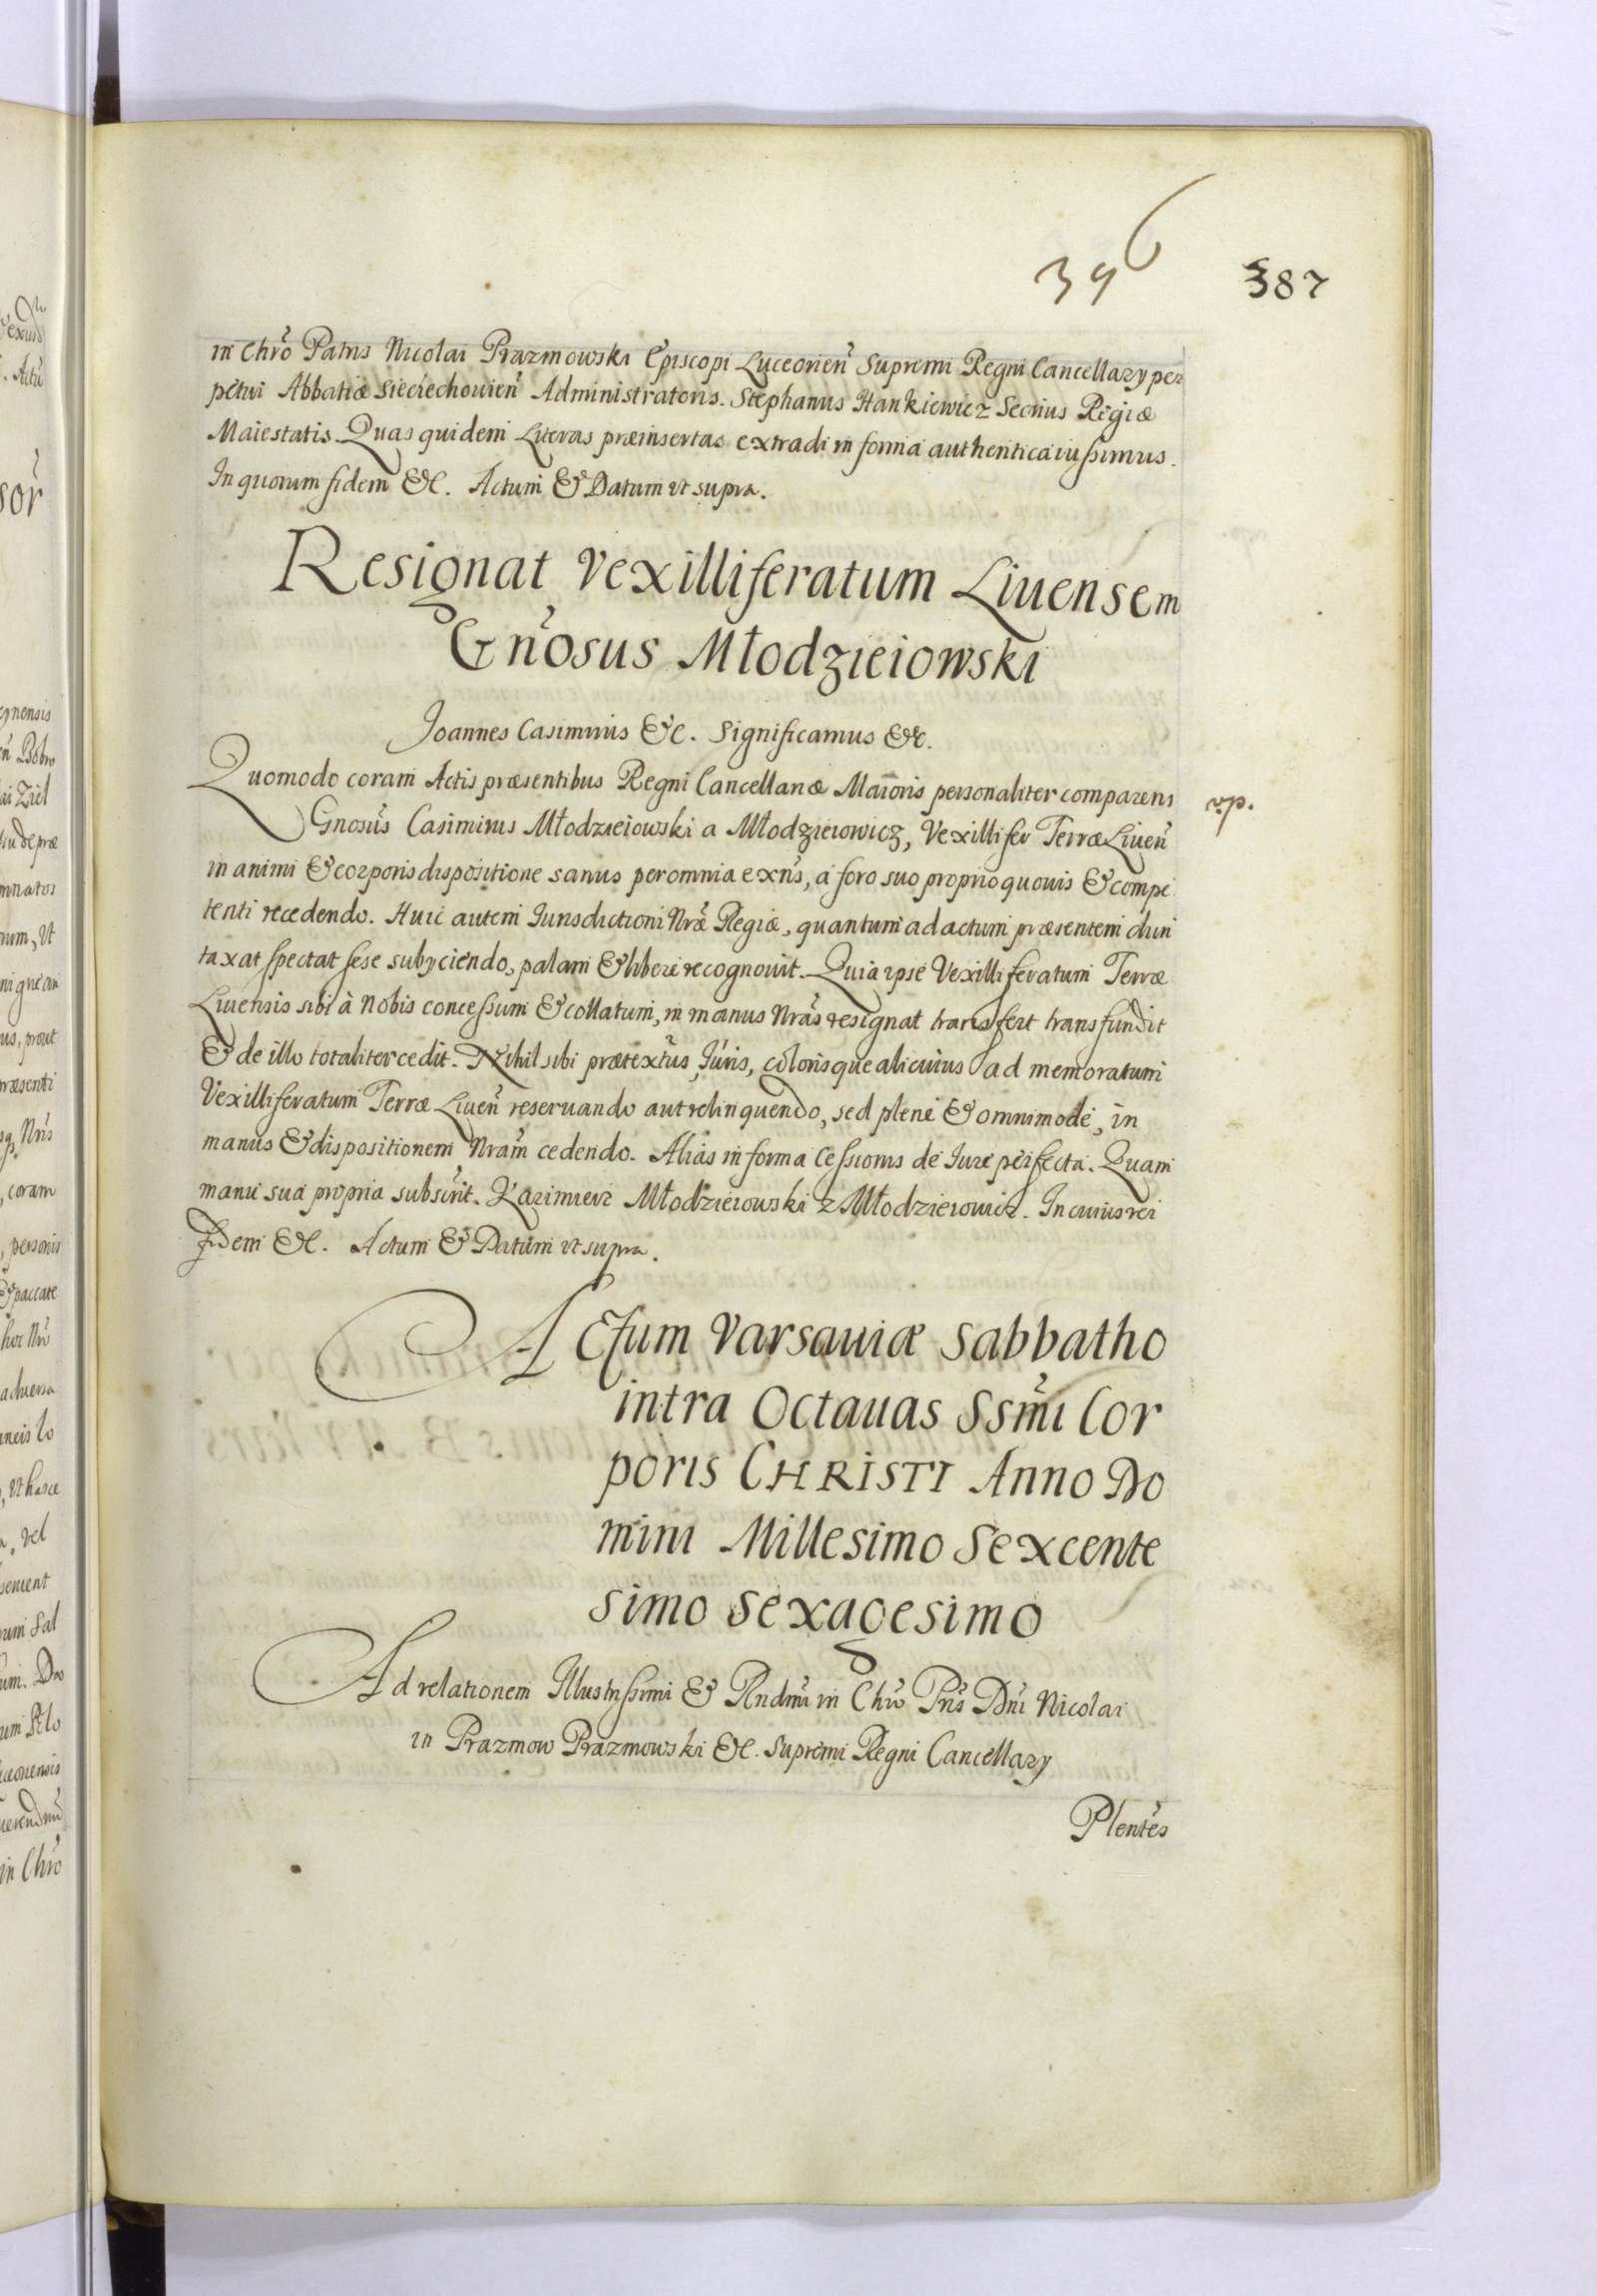 396
387
in Chro Patris Nicolai Prazmowski Episcopi Luceorien Supremi Regni Cancellary per
petui Abbatiæ Sieciechouien Administratoris. Stephanus Hankiewicz Secrius Regiæ
Maiestatis. Quas quidem Literas præinsertas extradi in forma authentica iussimus.
In quorum fidem &c. Actum & Datum ut supra.
Resignat Vexilliferatum Liuensem
Gnosus Młodzieiowski
Joannes Casimirus &c. Significamus &c.
Quomodo coram Actis præsentibus Regni Cancellariæ Maioris personaliter comparens
Gnosus Casimirus Młodzieiowski a Młodzieiowicz, Vexillifer Terræ Liuen
in animi & corporis dispositione sanus per omnia exns, a foro suo proprio quouis & compe
tenti recedendo. Huic autem Iurisdictioni Nræ Regiæ, quantum ad actum præsentem dun
taxat spectat sese subyciendo, palam & libere recognouit. Quia ipse Vexilliferatum Terræ
Liuensis sibi à Nobis concessum & collatum, in manus Nras resignat transfert transfundit
& de illo totaliter cedit. Nihil sibi prætextus, Iuris, colorisque alicuius ad memoratum
Vexilliferatum Terræ Liuen reseruando aut relinquendo, sed plene & omnimode, in
manus & dispositionem Nram cedendo. Alias in forma Cessionis de Iure perfecta. Quam
manu sua propria subscrit. Kazimierz Młodzieiowski z Młodzieiowicz. In cuius rei
fidem &c. Actum & Datum ut supra.
Actum Varsauiæ Sabbatho
intra Octauas Ssmi Cor
poris CHRISTI Anno Do
mini Millesimo Sexcente
simo Sexagesimo
Ad relationem Illustrissimi & Rndmi in Chro Pris Dni Nicolai
in Prazmow Prazmowski &c. Supremi Regni Cancellary
Plentes